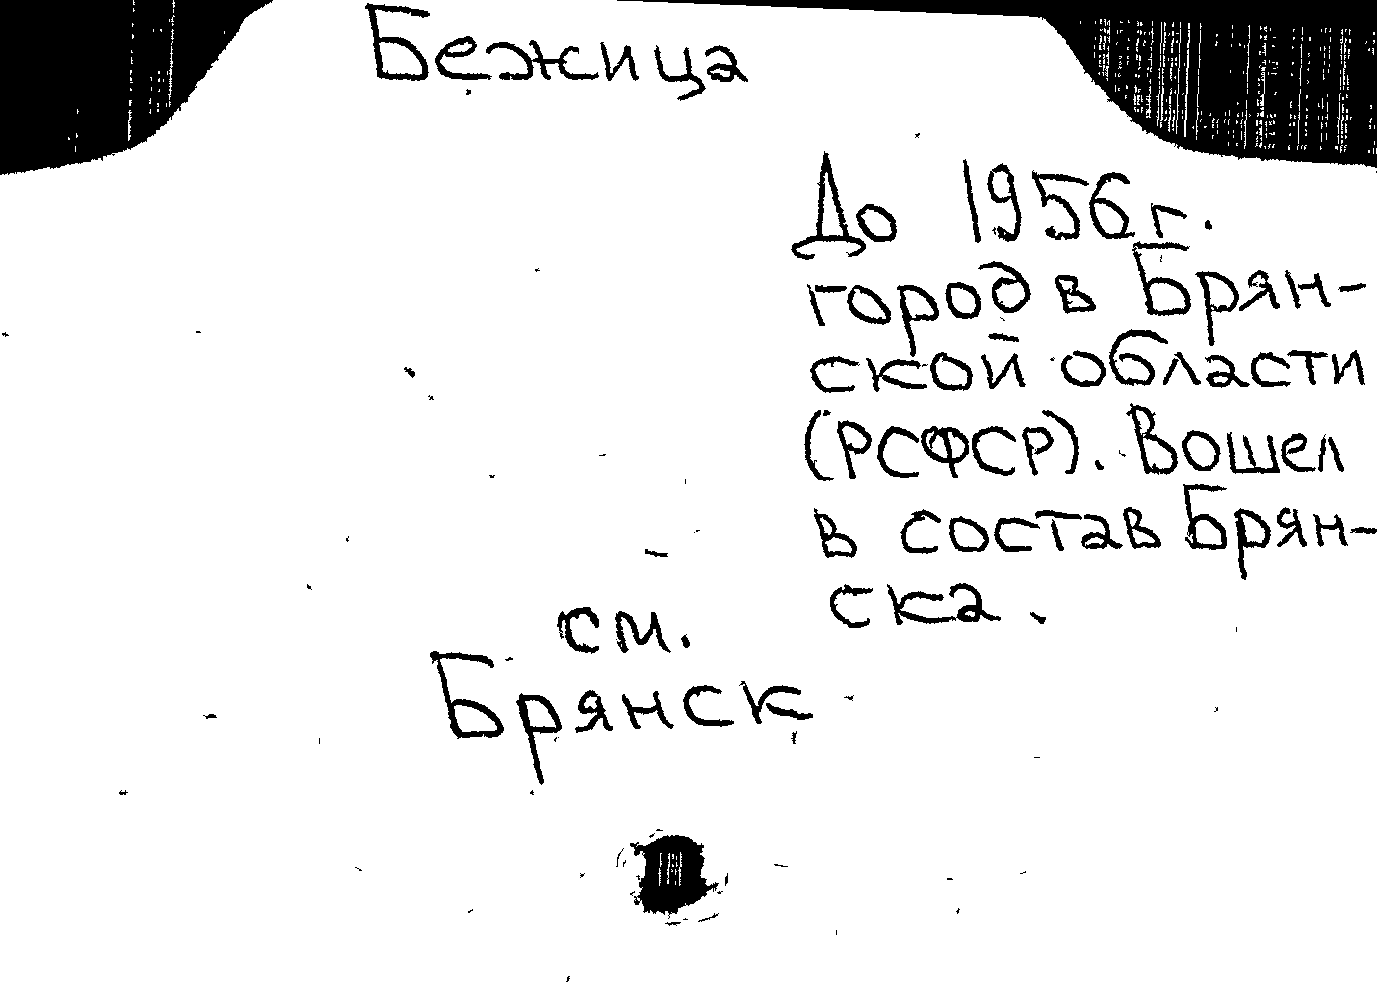 Бежица
До 1956 г.
город в Брян-
ской области
(РСФСР). Вошел
в состав Брян-
ска.
см.
Брянск